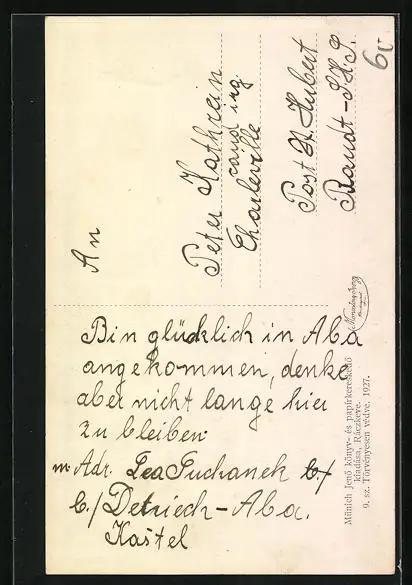 An
Peter Kathrein
cand ing.
Charleville
Post St. Hubert
Brandt-S.H.S.
Bin glücklich in Aba
angekommen, denke
aber nicht lange hier
zu bleiben.
m. Adr. Lea Puchanek
b./ Detriech-Aba.
Kaštel
Münich Jenő könyv- és papírkereskedő
kiadása, Ráczkeve.
9. sz. Törvényesen védve, 1927.